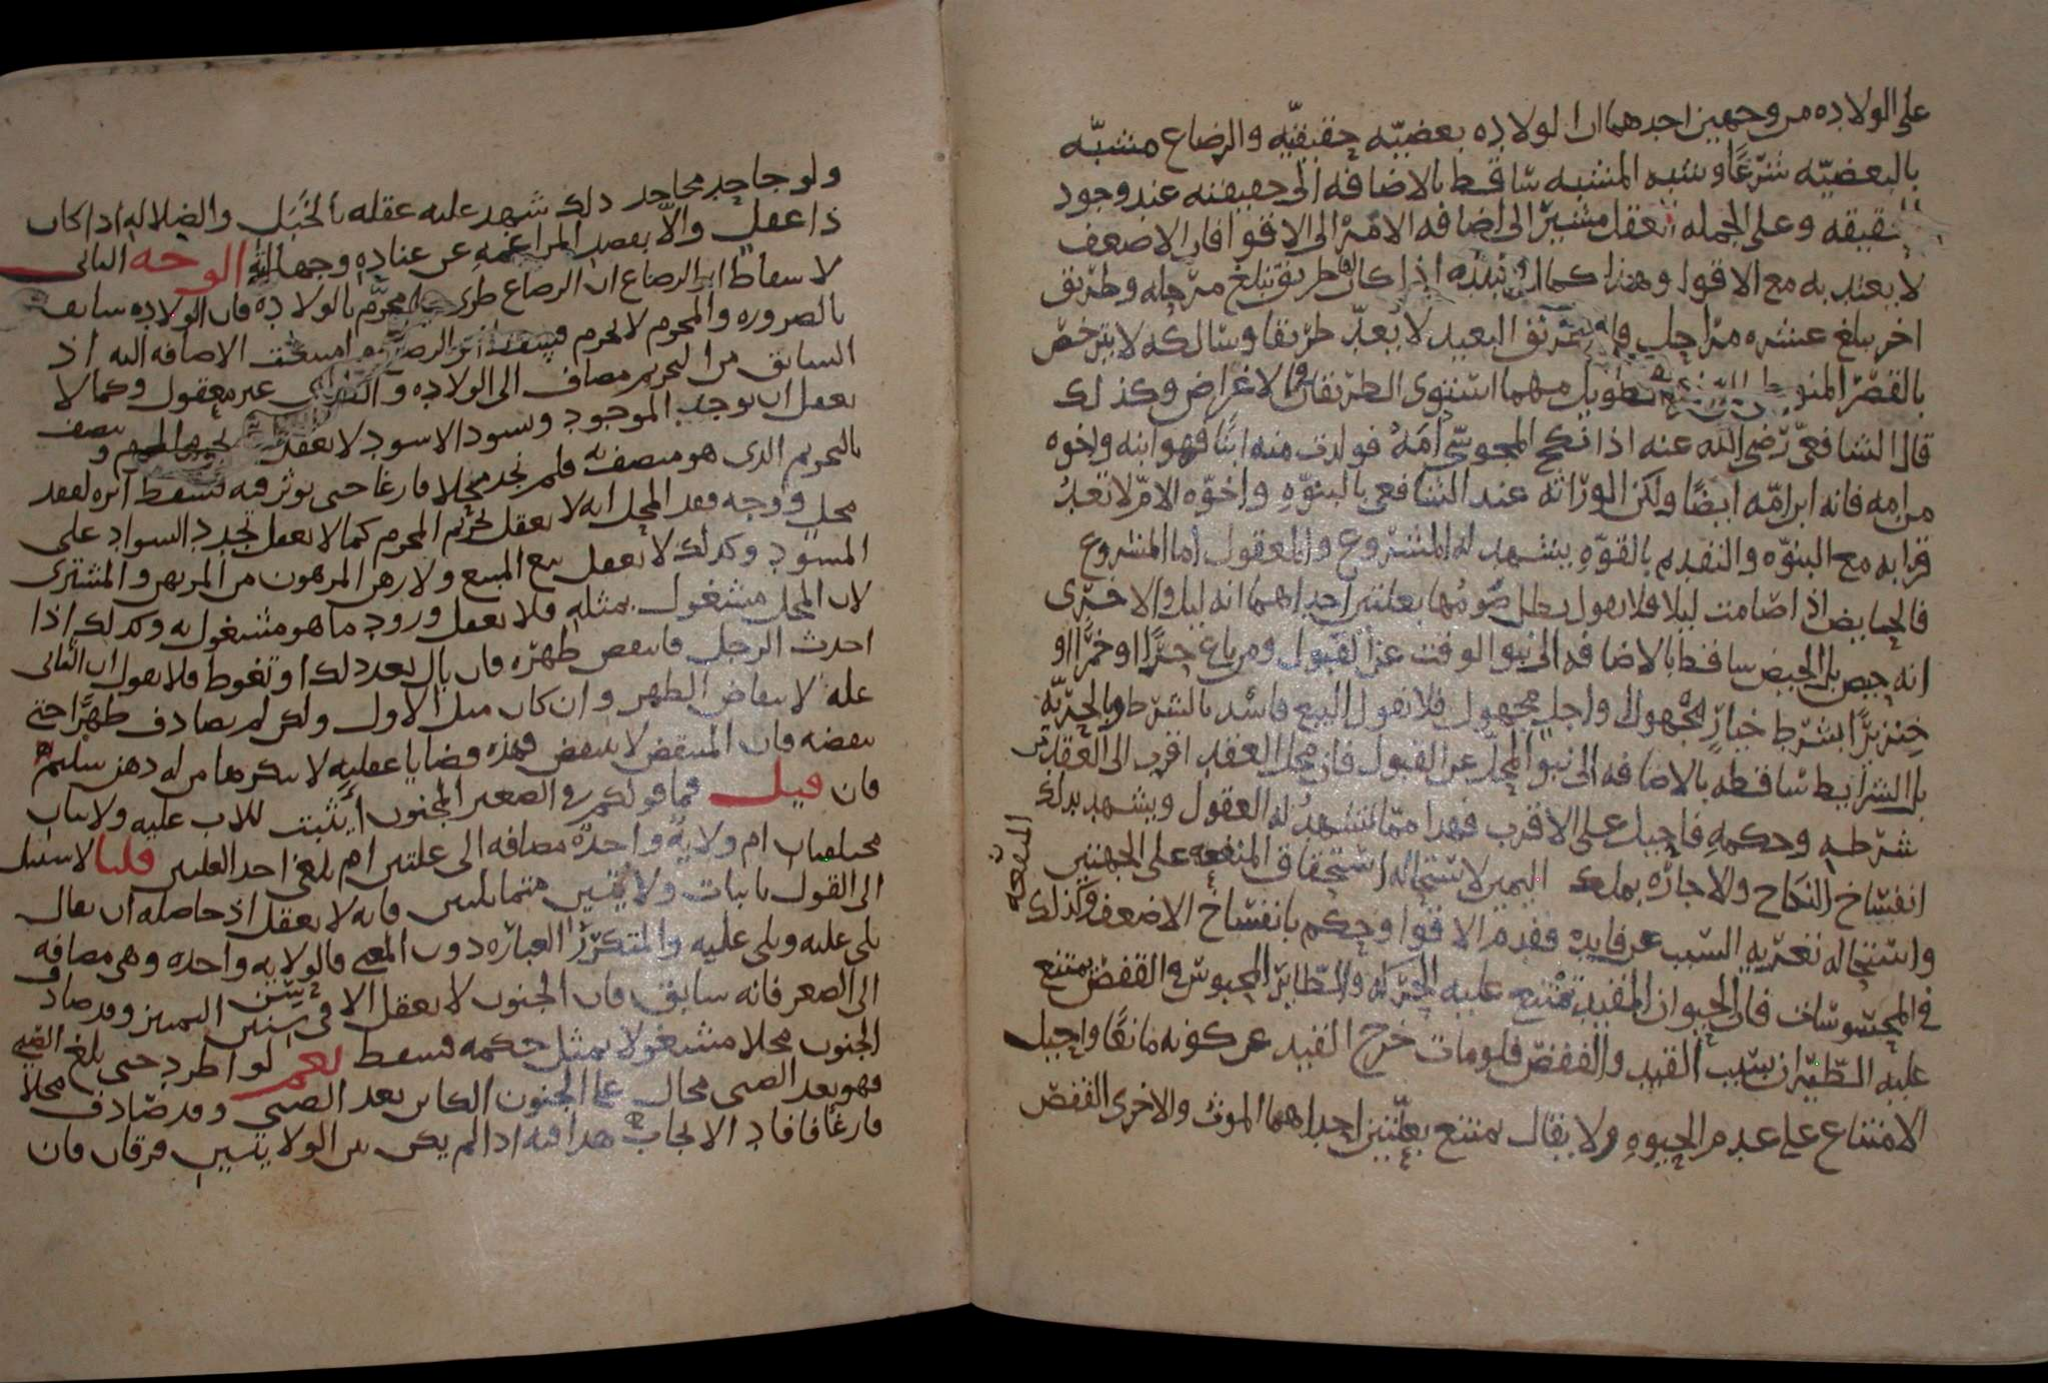 على الولاده من وجهين احدهما ان الولاده بعضيه حقيقيه والرضاع مشبه
بالبعضيه شرعا وشبه المشبه ساقط بالاضافه الى حقيقته عند وجود
وعلى الجمله تعقل مشير الى اضافه الامر الى الاقوا فان الاضعف
لا يعتد به مع الاقوا وهذا كما ان اذا كان طريق تبلغ مرحله وطريق
اخر يبلغ عشره مراحل البعيد لا يعد طريقا وسالكه لا يترخص
بالقصر تطويل مهما استوى الطريقان في الاغراض وكذلك
قال الشافعي رضي الله عنه اذا نكح المجوسي امه فولدت منه ابنا فهو ابنه واخوه
من امه فانه ابن امه ايضا ولكن الوراثه عند الشافعي بالبنوه واخوه الام لا تعد
قرابه مع البنوه والتقديم بالقوه يشهد له المشروع والمعقول اما المشروع
فالحايض اذا صامت ليلا فلا نقول بطل صومها بعلتين احداهما انه ليل والاخرى
انه حيض بل الحيض ساقط بالاضافه الى نبو الوقت عن القبول ومن باع حرا او خمرا او
خنزيرا بشرط خيار مجهول واجل مجهول فلا نقول البيع فاسد بالشرط وبالحريه
بل الشرايط ساقطه بالاضافه الى نبو المحل عن القبول فان محل العقد اقرب الى العقد من
شرطه وحكمه فاحيل على الاقرب فهذا مما تشهد له العقول ويشهد بذلك
انفساخ النكاح والاجاره بملك اليمين لاستحاله استحقاق المنفعه على الجهتين
المنفعه
واستحاله تعريه السبب عن فايده فقدم الاقوا وحكم بانفساخ الاضعف وكذلك
في المحسوسات فان الحيوان المقيد تمتنع عليه الحركه والطاير المحبوس في القفص يمتنع
عليه الطيران بسبب القيد والقفص فلو مات خرج القيد عن كونه مانعا واحيل
الامتناع على عدم الحيوه ولا يقال يمتنع بعلتين احداهما الموت والاخرى القفص
ولو جاحد محاحد ذلك شهد عليه عقله بالخبل والضلاله اذا كان
ذا عقل والا بقصد المراغمه عن عناده وجهاله الوجه الثاني
لاسقاط اثر الرضاع ان الرضاع طرى على محرم بالولاده فان الولاده سابقه
بالضروره والمحرم لا يحرم فسقط اثر امتنعت الاضافه اليه اذ
السابق من التحريم مضاف الى الولاده غير معقول وكما لا
يعقل ان يوجد الموجود ويسود الاسود لا يعقل
بالتحريم الذي هو متصف به فلم نجد محلا فارغا حتى يوثر فيه فسقط اثره لفقد
محل ووجه فقد المحل انه لا يعقل تحريم المحرم كما لا يعقل تجدد السواد على
المسود وكذلك لا يعقل بيع المبيع ولا رهن المرهون من المرتهن والمشترى
لان المحل مشغول بمثله فلا يعقل ورود ما هو مشغول به وكذلك اذا
احدث الرجل فانتقض طهره فان بال بعد ذلك او تغوط فلا نقول ان الثاني
عله لانتقاض الطهر وان كان مثل الاول ولكن لم يصادف طهرا حتى
ينقضه فان المنتقض لا ينتقض فهذه قضايا عقليه لا ينكرها من له ذهن سليم
فان قيل فما قولكم في الصغير المجنون ايثبت للاب عليه ولايتان
مختلفتان ام ولايه واحده مضافه الى علتين ام يلغى احد العلتين قلنا لا سبيل
الى القول باثبات ولايتين متماثلتين فانه لا يعقل اذ حاصله ان يقال
يلي عليه ويلي عليه والمتكرر العباره دون المعنى فالولايه واحده وهى مضافه
الى الصغر فانه سابق فان الجنون لا يعقل الا في سنين التمييز وقد صادف
الجنون محلا مشغولا بمثل حكمه فسقط نعم لو اطرد حتى بلغ الصبي
فهو بعد الصبى محال على الجنون الكاين بعد الصبى وقد صادف محلا
فارغا فافاد الايجاب هذا فيه اذا لم يكن بين الولايتين فرقان فان